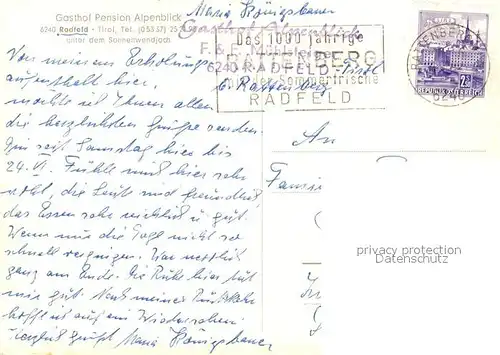 Maria Königsbauer
Gasthof Pension Alpenblick
6240 Radfeld - Tirol, Tel. (05337) 25
unter dem Sonnwendjoch
Das 1000 jährige
RATTENBERG
RADFELD
F. &
6240 RADFELD - Tirol
b. Rattenberg
Sommerfrische
RADFELD
REPUBLIK ÖSTERREICH
6240
Von meinem Erholungs-
aufenthalt hier,
möchte ich Ihnen allen
die herzlichsten Grüße senden.
Bin seit Samstag hier bis
24. VI. Fühle mich hier sehr
wohl, die Leute sind freundlich,
das Essen sehr reichlich u. gut.
Wenn nur die Tage nicht so
schnell vergingen. War
ganz am Ende. Die Ruhe hier tut
mir gut. Nach meiner Rückkehr
hoffe ich auf ein Wiedersehen.
Herzlich grüßt Maria Königsbauer
An
Famili
privacy protection
Datenschutz